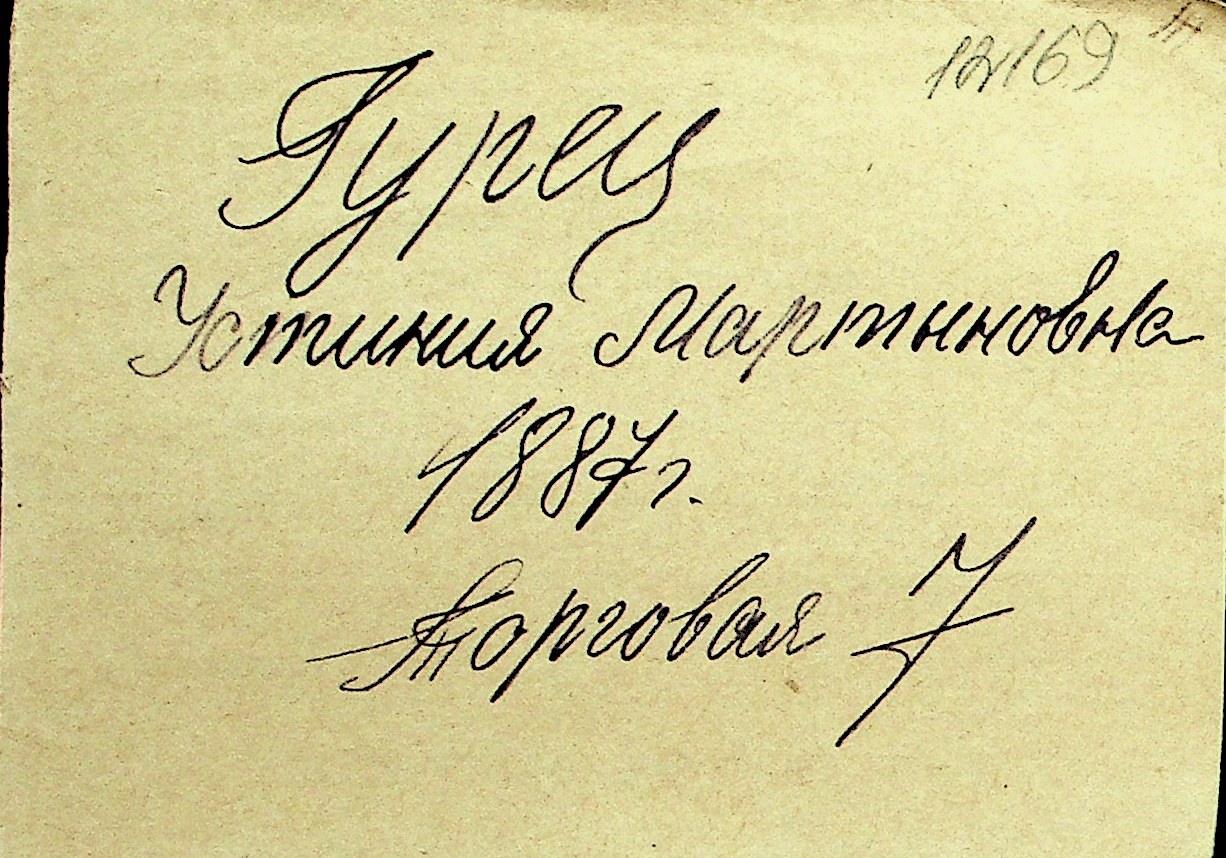 12169
Гурец
Устиния Мартыновна
1887 г.
Торговая 7